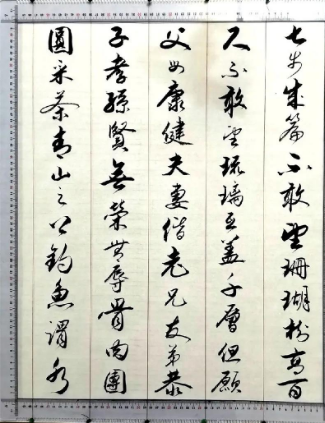 七步成篇不敢望珊瑚樹高百
尺不敢望琉璃瓦蓋千層但願
父母康健夫妻偕老兄友弟恭
子孝孫賢無榮無辱骨肉團
圓采茶青山之上釣魚謂水